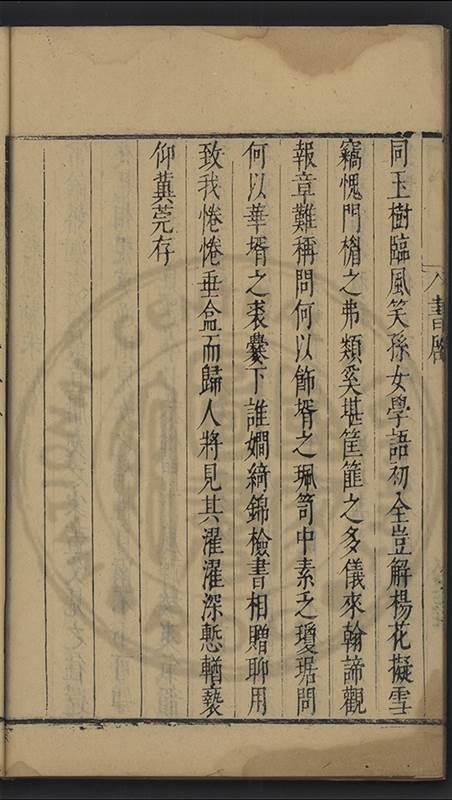 同玉樹臨風笑孫女學語初全豈解楊花擬雪
竊愧門楣之弗類奚堪筐篚之多儀來翰諦觀
報章難稱問何以飾壻之珮笥中素乏瓊琚問
何以華壻之裘爨下誰嫻綺錦檢書相贈聊用
致我惓惓垂盒而歸人將見其濯濯深慙輶褻
仰冀莞存